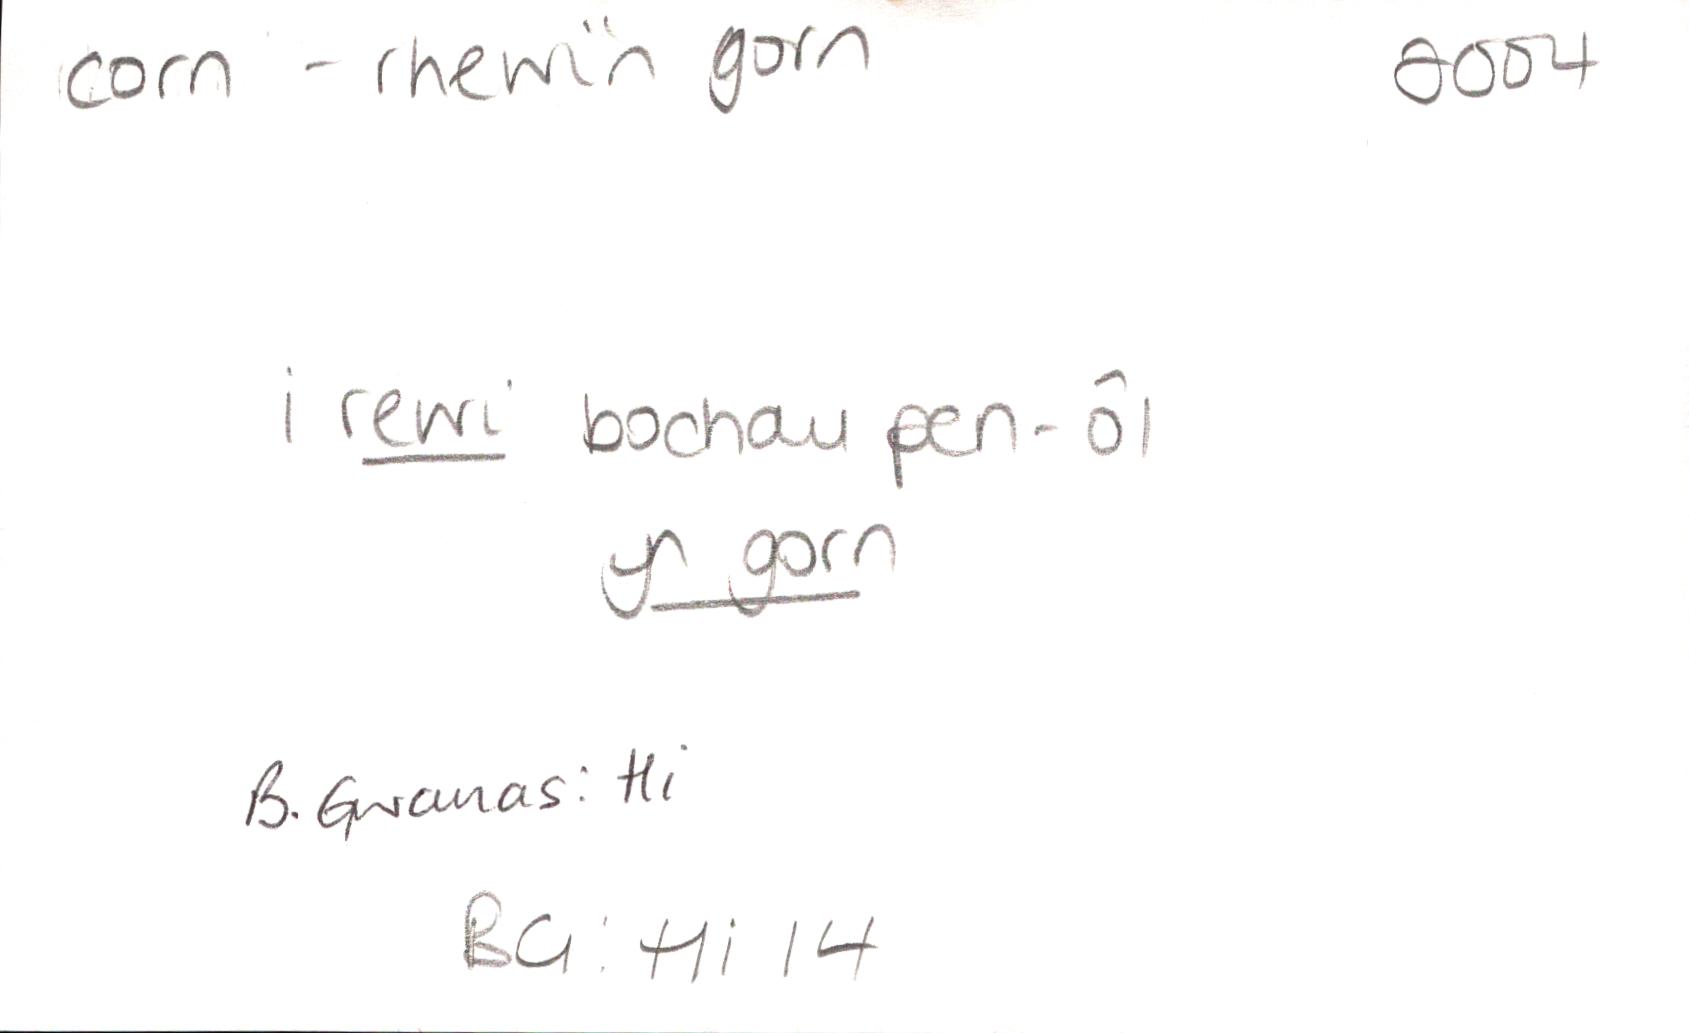 corn - rhewi'n gorn 2004
i rewi bochau pen-ôl
yn gorn
B. Gwanas: Hi
BG: Hi 14